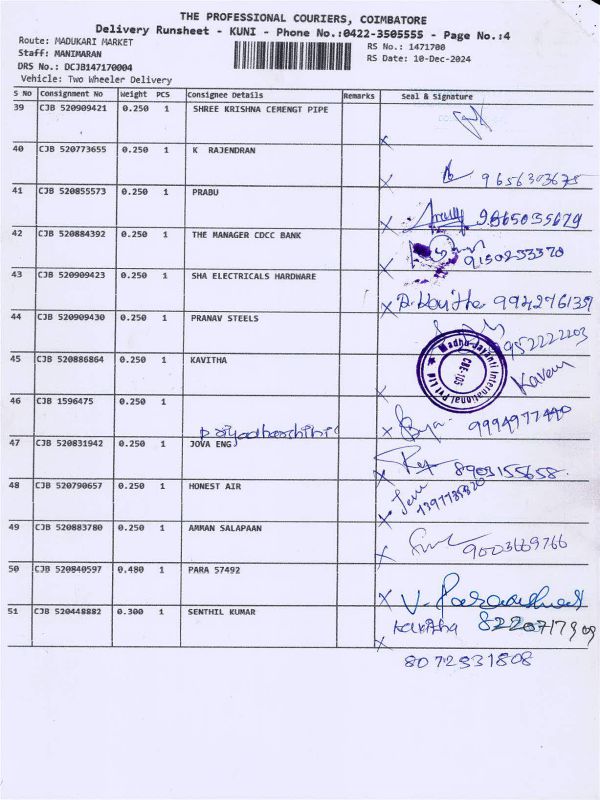 THE PROFESSIONAL COURIERS, COIMBATORE
Delivery Runsheet - KUNI - Phone No.:0422-3505555 - Page No.:4
Route: MADUKARI MARKET RS No.: 1471700
Staff: MANIMARAN RS Date: 10-Dec-2024
DRS No.: DCJB147170004
Vehicle: Two Wheeler Delivery
S No Consignment No Weight PCS Consignee Details Remarks Seal & Signature
39 CJB 520909421 0.250 1 SHREE KRISHNA CEMENGT PIPE
X
40 CJB 520773655 0.250 1 K RAJENDRAN
X 9656303675
41 CJB 520855573 0.250 1 PRABU
X 9865035679
42 CJB 520884392 0.250 1 THE MANAGER CDCC BANK
X 9150233370
43 CJB 520909423 0.250 1 SHA ELECTRICALS HARDWARE
X 994276139
44 CJB 520909430 0.250 1 PRANAV STEELS
952222203
Madhu Jayanti International Pvt Ltd
CBE-105
45 CJB 520886864 0.250 1 KAVITHA
X
46 CJB 1596475 1
X 9994977440
47 CJB 520831942 0.250 1 JOVA ENG
X 8903155658
48 CJB 520790657 0.250 1 HONEST AIR
X
49 CJB 520883780 0.250 1 AMMAN SALAPAAN
X 9003669766
50 CJB 520840597 0.480 1 PARA 57492
X
51 CJB 520448882 0.300 1 SENTHIL KUMAR
8220717909
X
8072931808